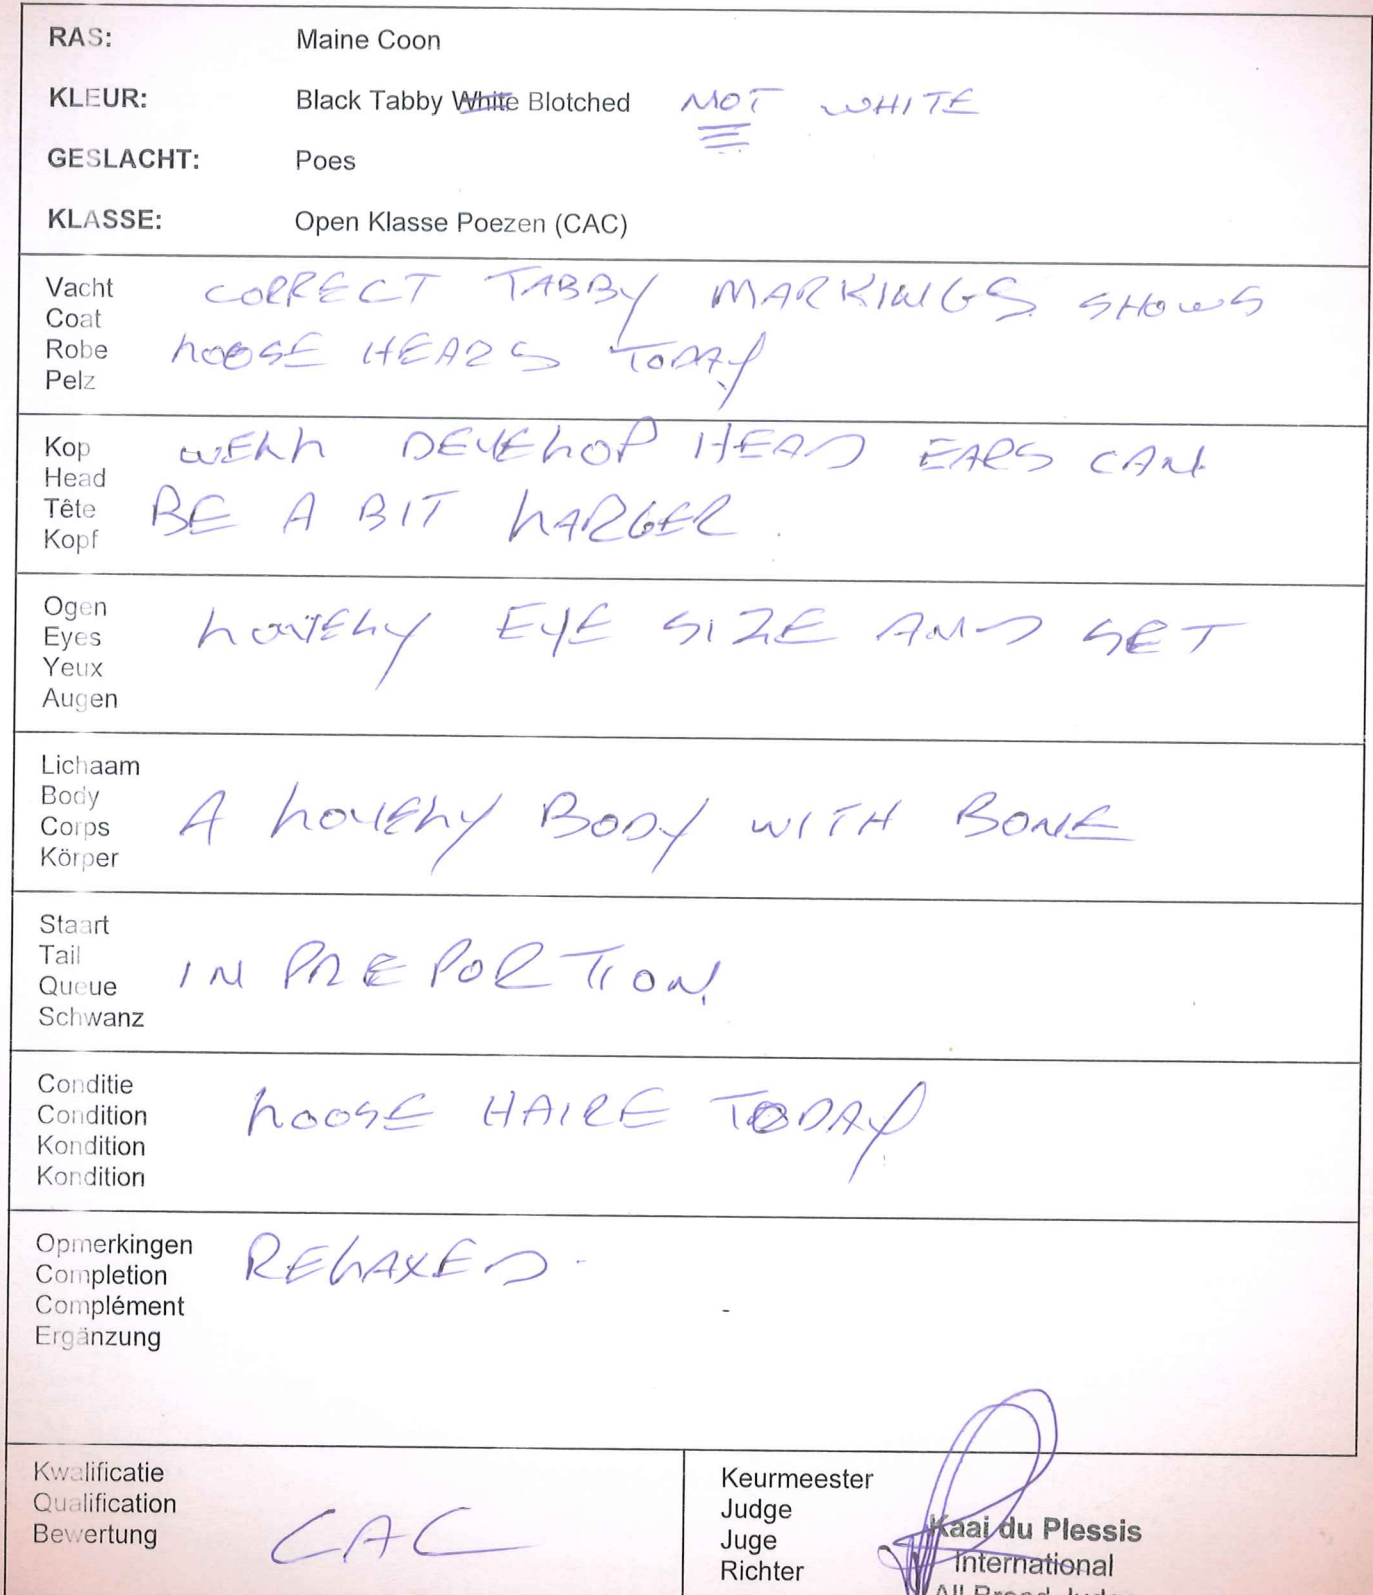 RAS: Maine Coon
KLEUR: Black Tabby White Blotched NOT WHITE
GESLACHT: Poes
KLASSE: Open Klasse Poezen (CAC)
Vacht
Coat
Robe
Pelz
CORRECT TABBY MARKINGS SHOWS
LOOSE HEARS TODAY
Kop
Head
Tête
Kopf
WELL DEVELOP HEAD EARS CAN
BE A BIT LARGER.
Ogen
Eyes
Yeux
Augen
LOVELY EYE SIZE AND SET
Lichaam
Body
Corps
Körper
A LOVELY BODY WITH BONE
Staart
Tail
Queue
Schwanz
IN PREPORTION.
Conditie
Condition
Kondition
Kondition
LOOSE HAIRE TODAY
Opmerkingen
Completion
Complément
Ergänzung
RELAXED.
Kwalificatie
Qualification
Bewertung
CAC
Keurmeester
Judge
Juge
Richter
Kaai du Plessis
International
All Breed Judge